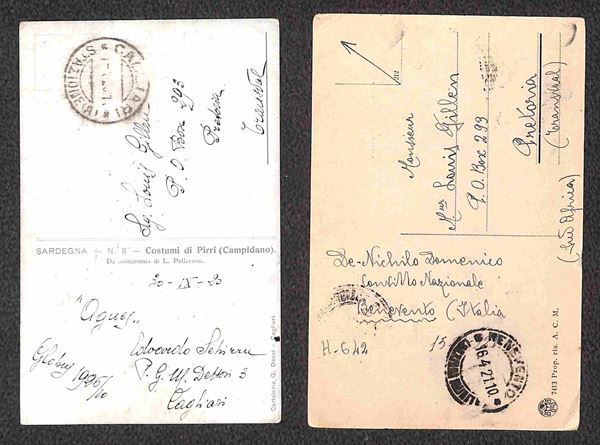 CAGLIARI
STAZIONE
Sg. Louis Gillen
P. O. Box 293
Pretoria
Transval
SARDEGNA - N. 8 - Costumi di Pirri (Campidano).
Da autocromia di L. Pellerano.
20-IX-20
"Agnes"
Edoardo
P. G. M. Dettori 3
Cagliari
Globus
Cartoleria, G. Dessì - Cagliari
Monsieur
Mr Louis Gillen
P. O. Box 293
Pretoria
(Transvaal)
(Sud Africa)
De-Nichilo Domenico
Convitto Nazionale
Benevento (Italia
H. 642
15
BENEVENTO
16.4.21.10
7413 Prop. ris. A. C. M.